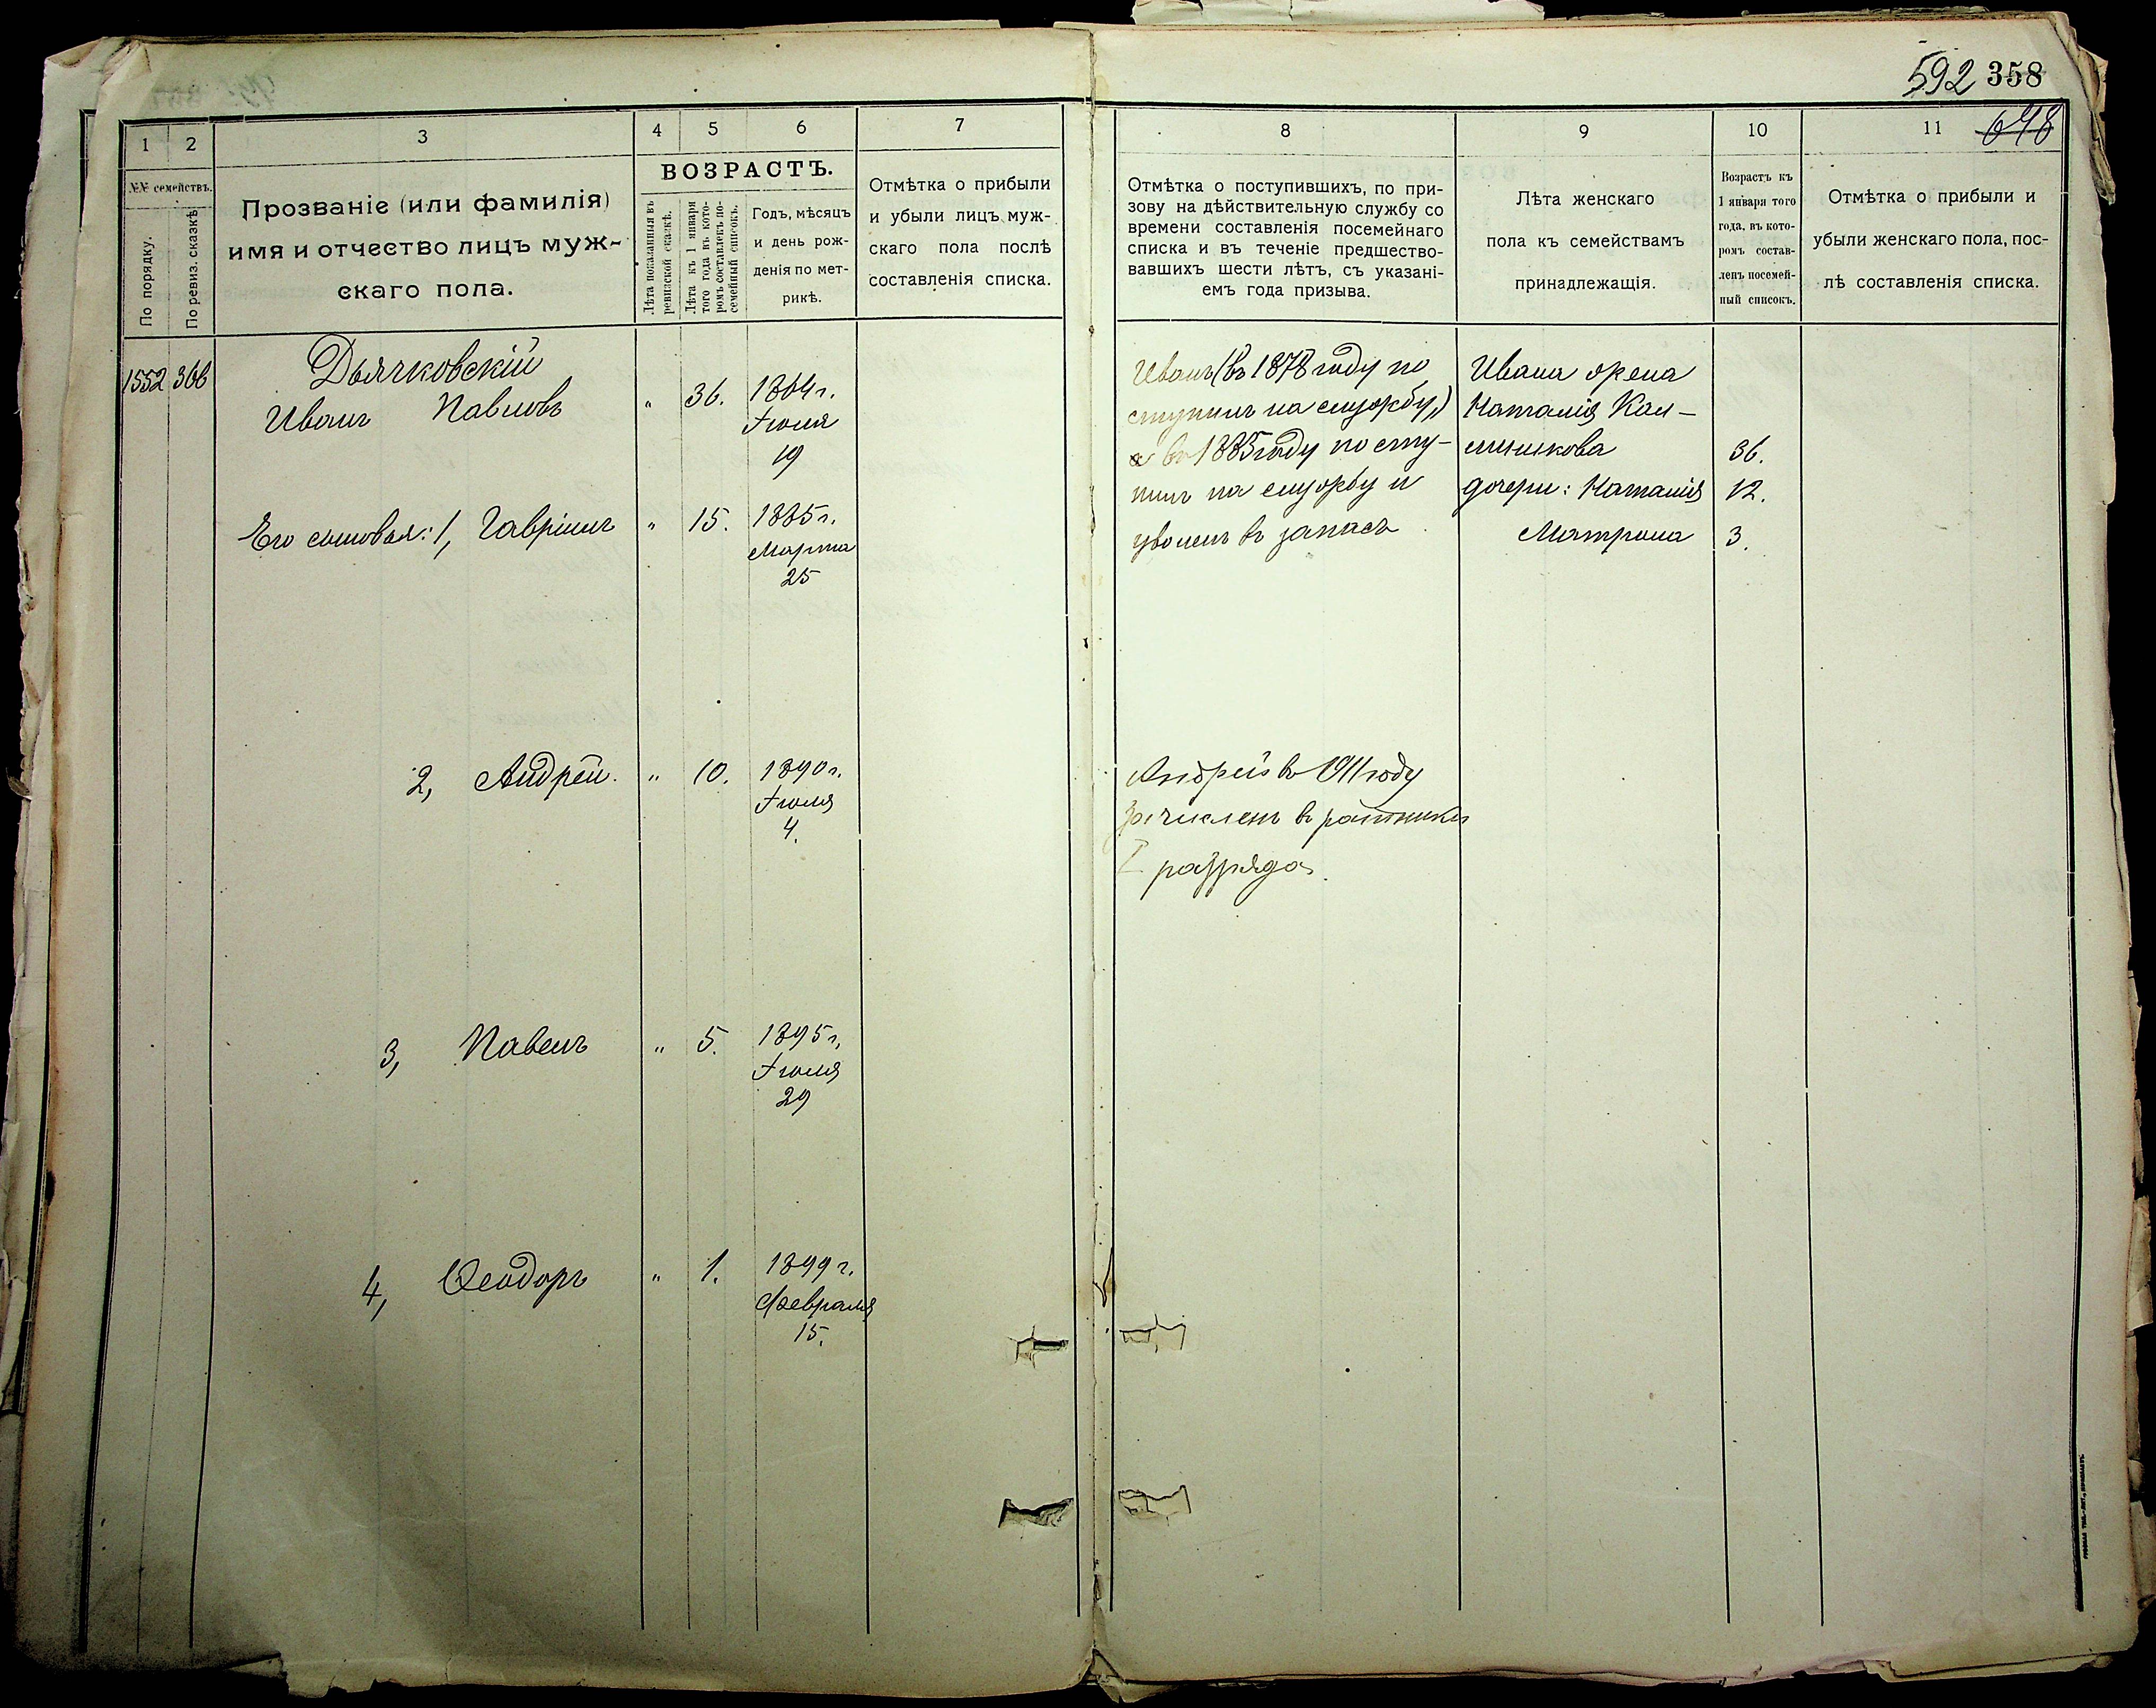 592 358
648
1 2 3 4 5 6 7 8 9 10 11
№№ семействъ.
По порядку.
По ревиз. сказкѣ.
Прозваніе (или фамилія)
имя и отчество лицъ муж-
скаго пола.
ВОЗРАСТЪ.
Лѣта показанныя въ
ревизской сказкѣ.
Лѣта къ 1 января
того года въ кото-
ромъ составленъ по-
семейный списокъ.
Годъ, мѣсяцъ
и день рож-
денія по мет-
рикѣ.
Отмѣтка о прибыли
и убыли лицъ муж-
скаго пола послѣ
составленія списка.
Отмѣтка о поступившихъ, по при-
зову на дѣйствительную службу со
времени составленія посемейнаго
списка и въ теченіе предшество-
вавшихъ шести лѣтъ, съ указані-
емъ года призыва.
Лѣта женскаго
пола къ семействамъ
принадлежащія.
Возрастъ къ
1 января того
года, въ кото-
ромъ состав-
ленъ посемей-
ный списокъ.
Отмѣтка о прибыли и
убыли женскаго пола, пос-
лѣ составленія списка.
1552 366 Дьячковскій
Иванъ Павловъ " 36. 1864 г.
Іюля
19
Его сыновья: 1, Гавріилъ " 15. 1885 г.
Марта
25
2, Андрей. " 10. 1890 г.
Іюля
4.
3, Павелъ " 5. 1895 г.
Іюля
29
4, Ѳеодоръ " 1. 1899 г.
Февраля
15.
Иванъ (въ 1878 году по
ступилъ на службу)
а въ 1885 году посту-
пилъ на службу и
уволенъ въ запасъ
Андрей в 1911 году
зачислен в ратники
I разряда.
Ивана жена
Наталія Кали-
шникова 36.
дочери: Наталія 12.
Матрона 3.